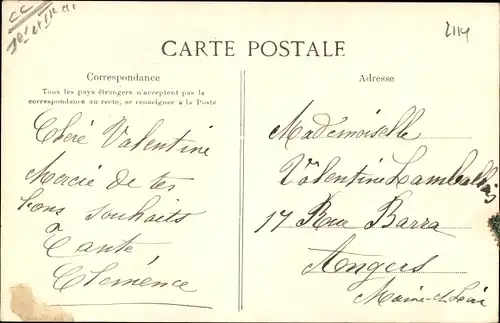 CC
2114
CARTE POSTALE
Correspondance
Tous les pays étrangers n'acceptent pas la
correspondance au recto, se renseigner à la Poste
Chère Valentine
Mercie de tes
bons souhaits
Tante
Clémence
Adresse
Mademoiselle
Valentine
17 Rue Barra
Angers
Maine-et-Loire